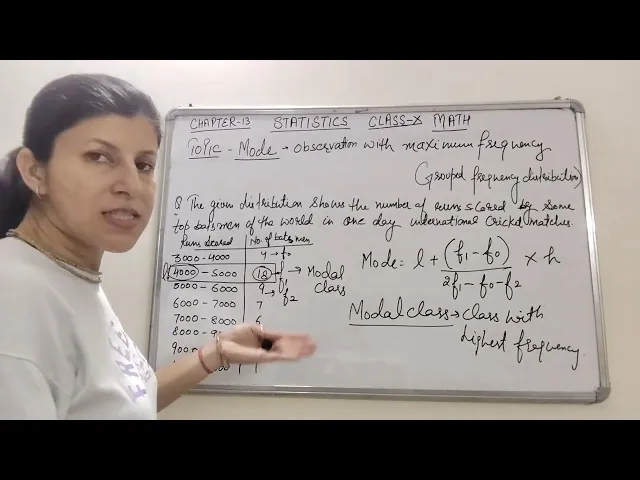 CHAPTER-13 STATISTICS CLASS-X MATH
TOPIC - Mode → observation with maximum frequency
(Grouped frequency distribution)
Q The given distribution shows the number of runs scored by some
top batsmen of the world in one day international Cricket matches.
Runs scored No. of batsmen
3000-4000 4 → f₀
l 4000-5000 18 → f₁ → Modal class
5000-6000 9 → f₂
6000-7000 7
7000-8000 6
8000-9
900
1
Mode = l + (f₁ - f₀) / 2f₁ - f₀ - f₂ × h
Modal class → class with
highest frequency